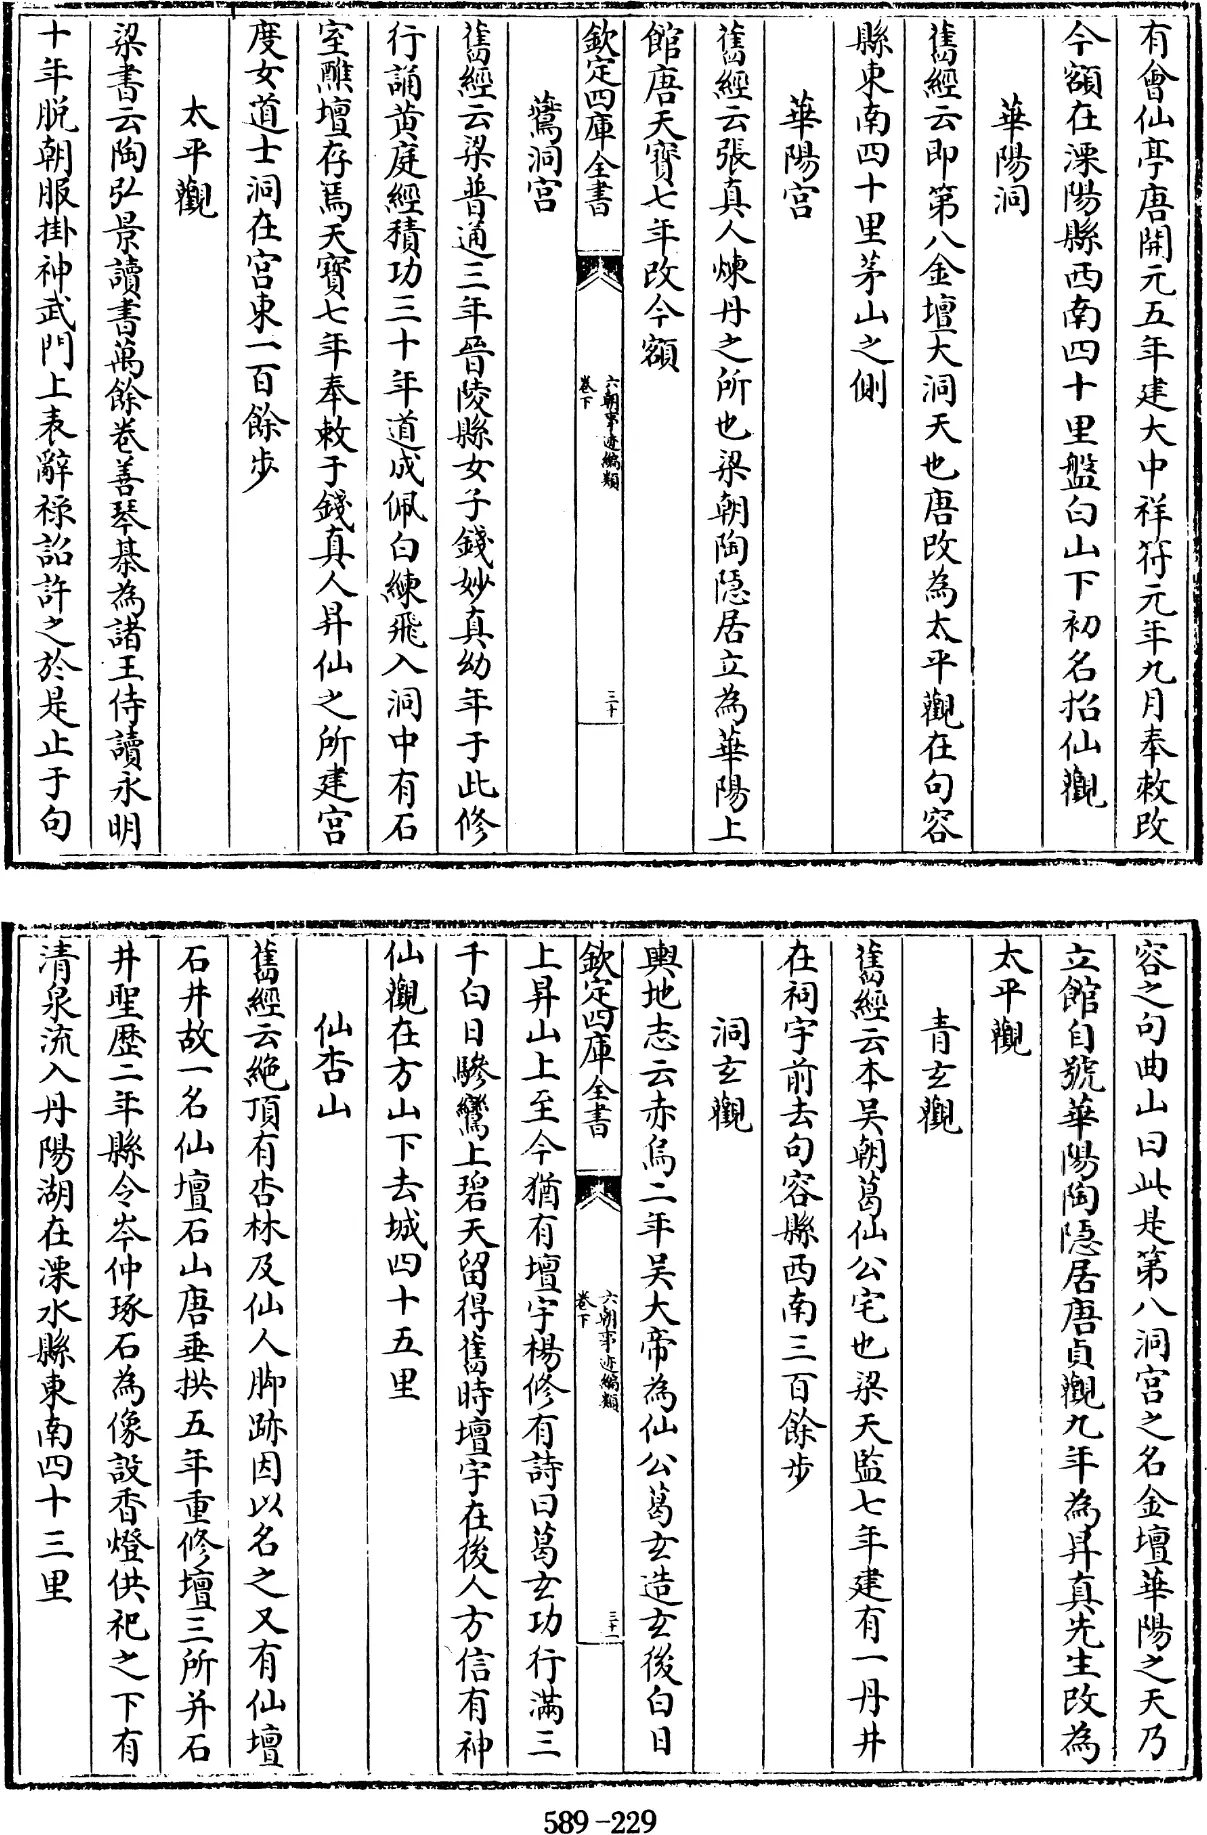 有會仙亭唐開元五年建大中祥符元年九月奉敕改
今額在溧陽縣西南四十里盤白山下初名招仙觀
華陽洞
舊經云即第八金壇大洞天也唐改為太平觀在句容
縣東南四十里茅山之側
華陽宮
舊經云張真人煉丹之所也梁朝陶隱居立為華陽上
館唐天寶七年改今額
欽定四庫全書
六朝事迹編類
卷下
三十
鷰洞宮
舊經云梁普通三年晉陵縣女子錢妙真幼年于此修
行誦黃庭經積功三十年道成佩白練飛入洞中有石
室醮壇存焉天寶七年奉敕于錢真人昇仙之所建宮
度女道士洞在宮東一百餘步
太平觀
梁書云陶弘景讀書萬餘卷善琴棊為諸王侍讀永明
十年脫朝服掛神武門上表辭祿詔許之於是止于句
容之句曲山曰此是第八洞宮之名金壇華陽之天乃
立館自號華陽陶隱居唐貞觀九年為昇真先生改為
太平觀
青玄觀
舊經云本吳朝葛仙公宅也梁天監七年建有一丹井
在祠宇前去句容縣西南三百餘步
洞玄觀
輿地志云赤烏二年吳大帝為仙公葛玄造玄後白日
欽定四庫全書
六朝事迹編類
卷下
三十一
上昇山上至今猶有壇宇楊修有詩曰葛玄功行滿三
千白日驂鸞上碧天留得舊時壇宇在後人方信有神
仙觀在方山下去城四十五里
仙杏山
舊經云絶頂有杏林及仙人脚跡因以名之又有仙壇
石井故一名仙壇石山唐垂拱五年重修壇三所并石
井聖歷二年縣令岑仲琢石為像設香燈供祀之下有
清泉流入丹陽湖在溧水縣東南四十三里
589-229